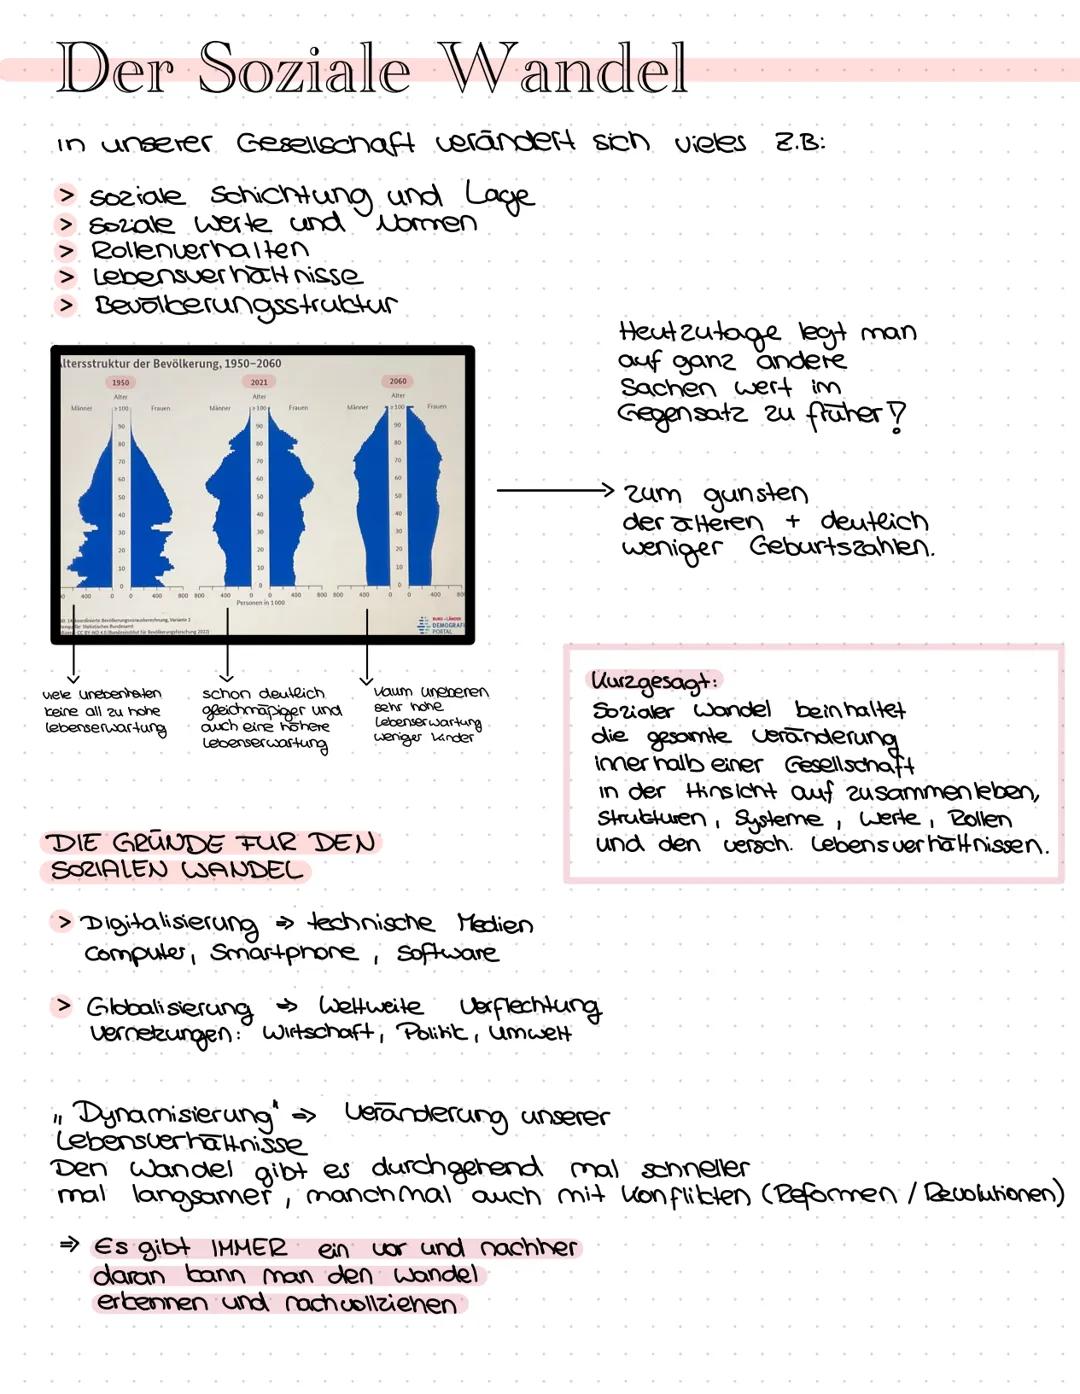 Der Soziale Wandel
in unserer Gesellschaft verändert sich vieles z.B:
> soziale Schichtung und Lage
> soziale Werte und Normen
> Rollenverhalten
> Lebensverhältnisse
> Bevölkerungsstruktur
Heutzutage legt man
auf ganz andere
Sachen wert im
Gegensatz zu früher!
Altersstruktur der Bevölkerung, 1950–2060
1950 2021 2060
Alter Alter Alter
Männer ≥100 Frauen Männer ≥100 Frauen Männer ≥100 Frauen
90 90 90
80 80 80
70 70 70
60 60 60
50 50 50
40 40 40
30 30 30
20 20 20
10 10 10
0 0 0
400 0 0 400 800 800 400 0 0 400 800 800 400 0 0 400 80
Personen in 1000
koordinierte Bevölkerungsvorausberechnung, Variante 2
Statistisches Bundesamt
CC BY-ND 4.0 (Bundesinstitut für Bevölkerungsforschung 2022)
BUND-LÄNDER
DEMOGRAFI
PORTAL
→ zum gunsten
der älteren + deutlich
weniger Geburtszahlen.
viele unebenheiten
keine all zu hohe
lebenserwartung
schon deutlich
gleichmäßiger und
auch eine höhere
Lebenserwartung
kaum unebenen
sehr hohe
Lebenserwartung
weniger kinder
Kurzgesagt:
Sozialer Wandel beinhaltet
die gesamte veränderung
innerhalb einer Gesellschaft
in der Hinsicht auf zusammenleben,
Strukturen, Systeme, Werte, Rollen
und den versch. Lebensverhältnissen.
DIE GRÜNDE FÜR DEN
SOZIALEN WANDEL
> Digitalisierung ⇒ technische Medien
Computer, Smartphone, Software
> Globalisierung ⇒ Weltweite Verflechtung
vernetzungen: Wirtschaft, Politik, Umwelt
„Dynamisierung" ⇒ Veränderung unserer
Lebensverhältnisse
Den Wandel gibt es durchgehend mal schneller
mal langsamer, manchmal auch mit Konflikten (Reformen / Revolutionen)
⇒ Es gibt IMMER ein vor und nachher
daran kann man den Wandel
erkennen und nachvollziehen